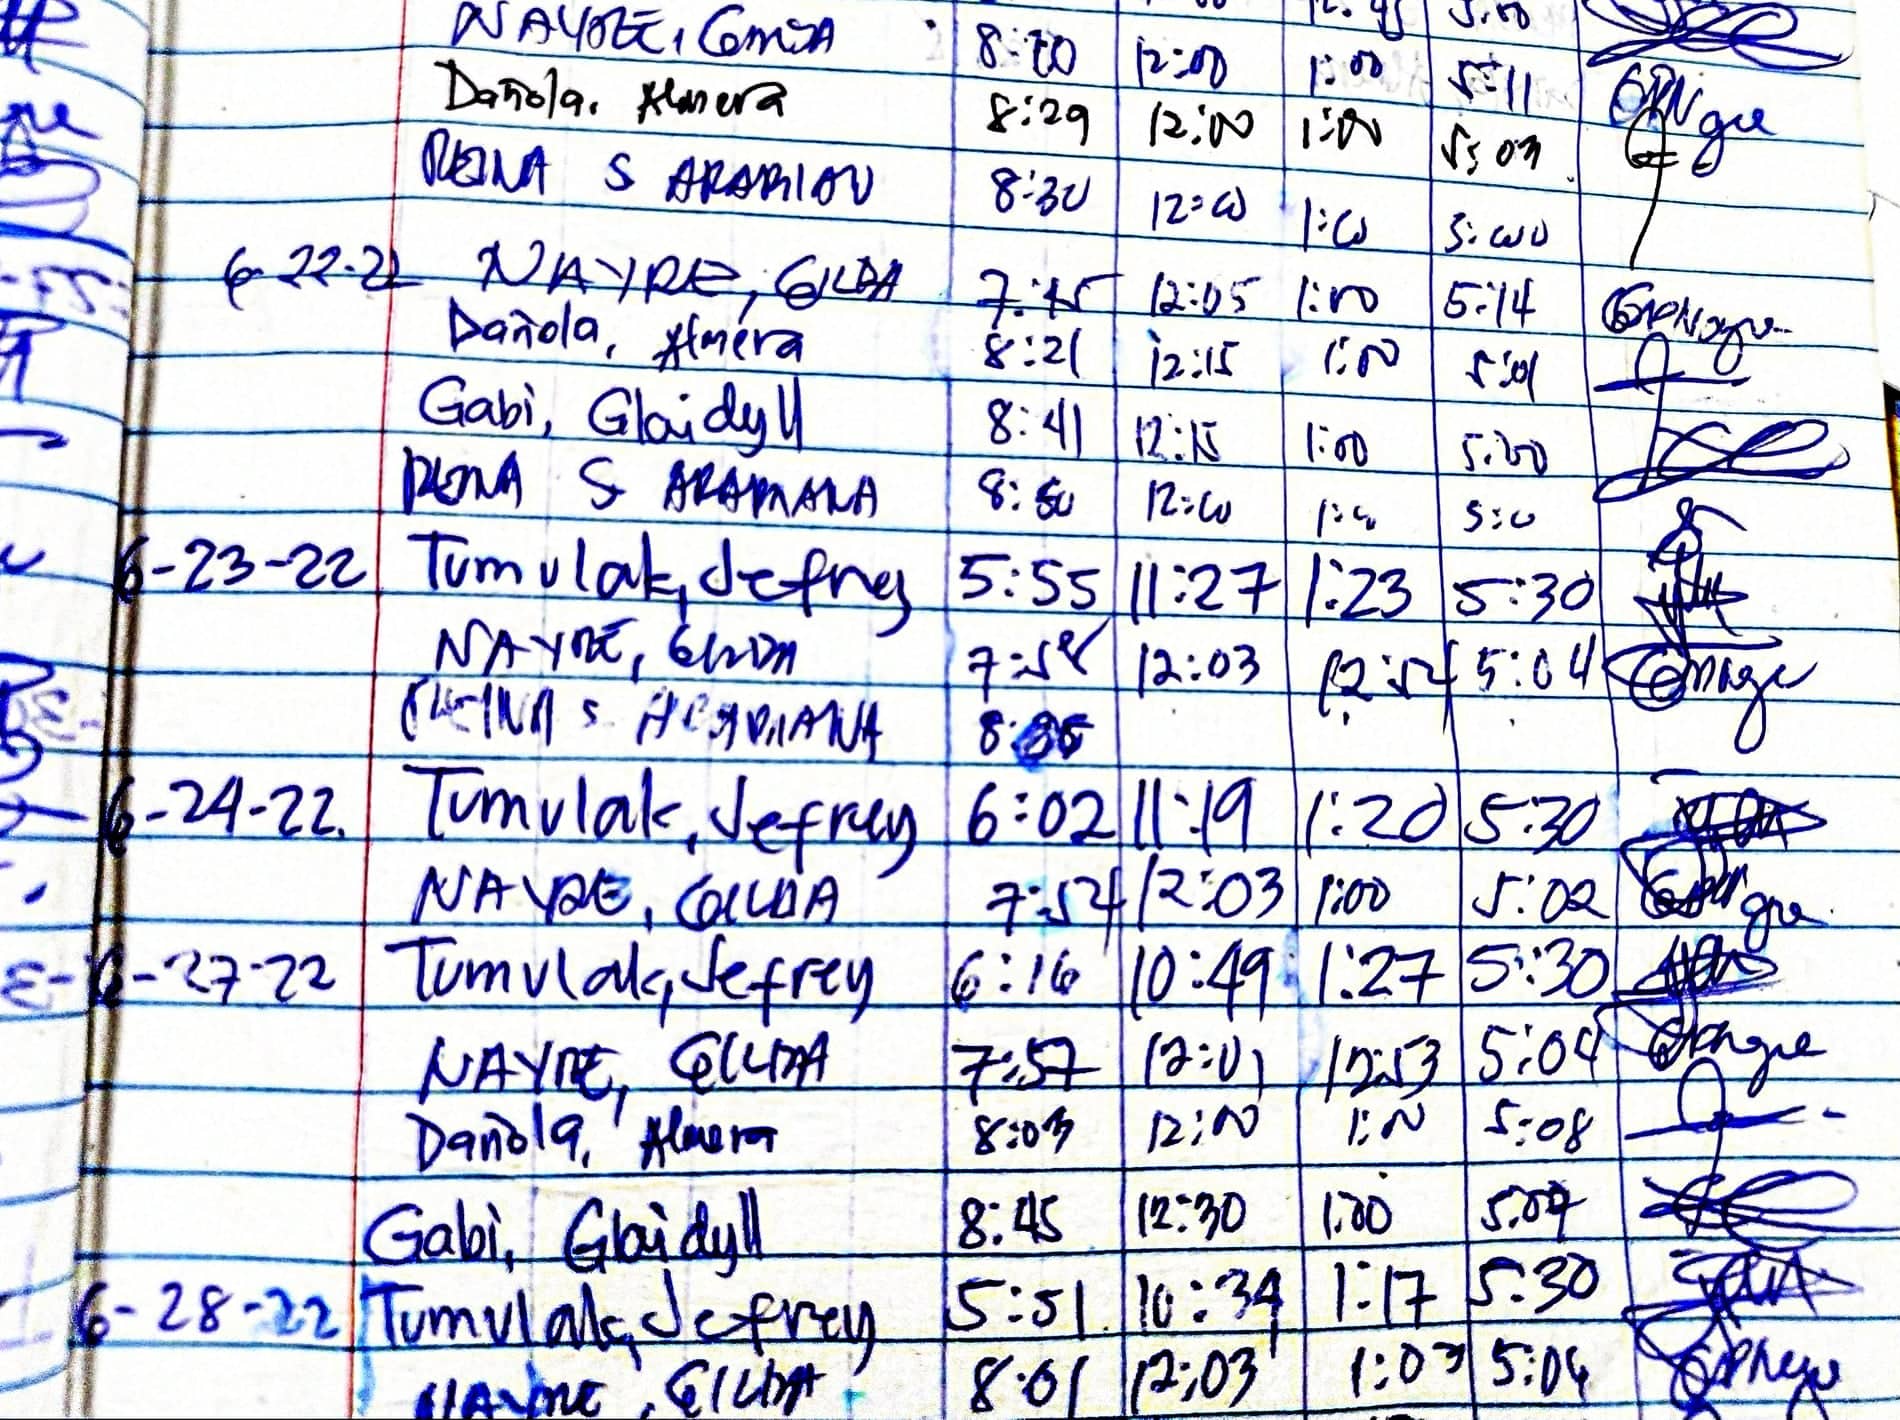 12:45 5:00
NAYRE, GILDA 8:20 12:00 1:00 5:11
Dañola, Almera 8:29 12:00 1:00 5:03
REINA S 8:30 12:00 1:00 5:00
6-22-22 NAYRE, GILDA 7:45 12:05 1:00 5:14
Dañola, Almera 8:21 12:15 1:00 5:01
Gabi, Glaidyll 8:41 12:15 1:00 5:00
REINA S 8:50 12:00 1:00 5:00
6-23-22 Tumulak, Jefrey 5:55 11:27 1:23 5:30
NAYRE, GILDA 7:58 12:03 12:54 5:04
REINA S 8:35
6-24-22. Tumulak, Jefrey 6:02 11:19 1:20 5:30
NAYRE, GILDA 7:54 12:03 1:00 5:02
6-27-22 Tumulak, Jefrey 6:16 10:49 1:27 5:30
NAYRE, GILDA 7:57 12:01 12:53 5:04
Dañola, Almera 8:03 12:00 1:00 5:08
Gabi, Glaidyll 8:45 12:30 1:00
6-28-22 Tumulak, Jefrey 5:51 10:34 1:17 5:30
NAYRE, GILDA 8:01 12:03 1:03